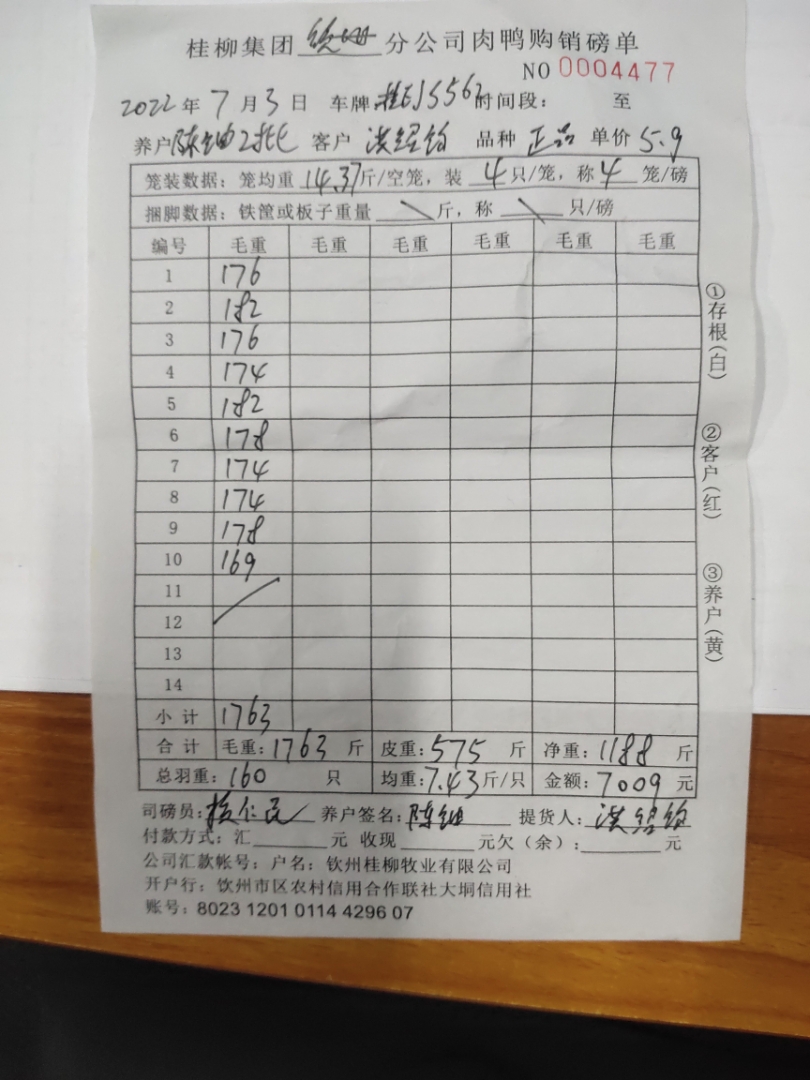 桂柳集团 钦州 分公司肉鸭购销磅单
NO 0004477
2022年7月3日 车牌 桂EJ5562 时间段： 至
养户 陈 2批 客户 洪绍钧 品种 正品 单价 5.9
笼装数据：笼均重 14.37 斤/空笼，装 4 只/笼，称 4 笼/磅
捆脚数据：铁筐或板子重量 \ 斤，称 \ 只/磅
编号 毛重 毛重 毛重 毛重 毛重 毛重
1 176
2 182
3 176
4 174
5 182
6 178
7 174
8 174
9 178
10 169
11
12
13
14
小 计 1763
合 计 毛重：1763 斤 皮重：575 斤 净重：1188 斤
总羽重：160 只 均重：7.43 斤/只 金额：7009 元
司磅员： 养户签名：陈 提货人：洪绍钧
付款方式：汇 元 收现 元欠（余）： 元
公司汇款帐号：户名：钦州桂柳牧业有限公司
开户行：钦州市区农村信用合作联社大垌信用社
账号：8023 1201 0114 4296 07
①存根（白）
②客户（红）
③养户（黄）